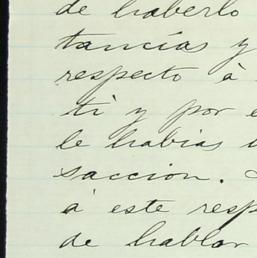 de haberlo
tancias y
respecto à
ti y por e
le habias
saccion.
à este resp
de hablar